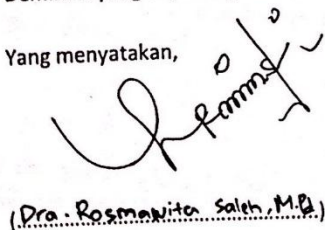 Yang menyatakan,
(Dra. Rosmawita Saleh, M.Pd.)